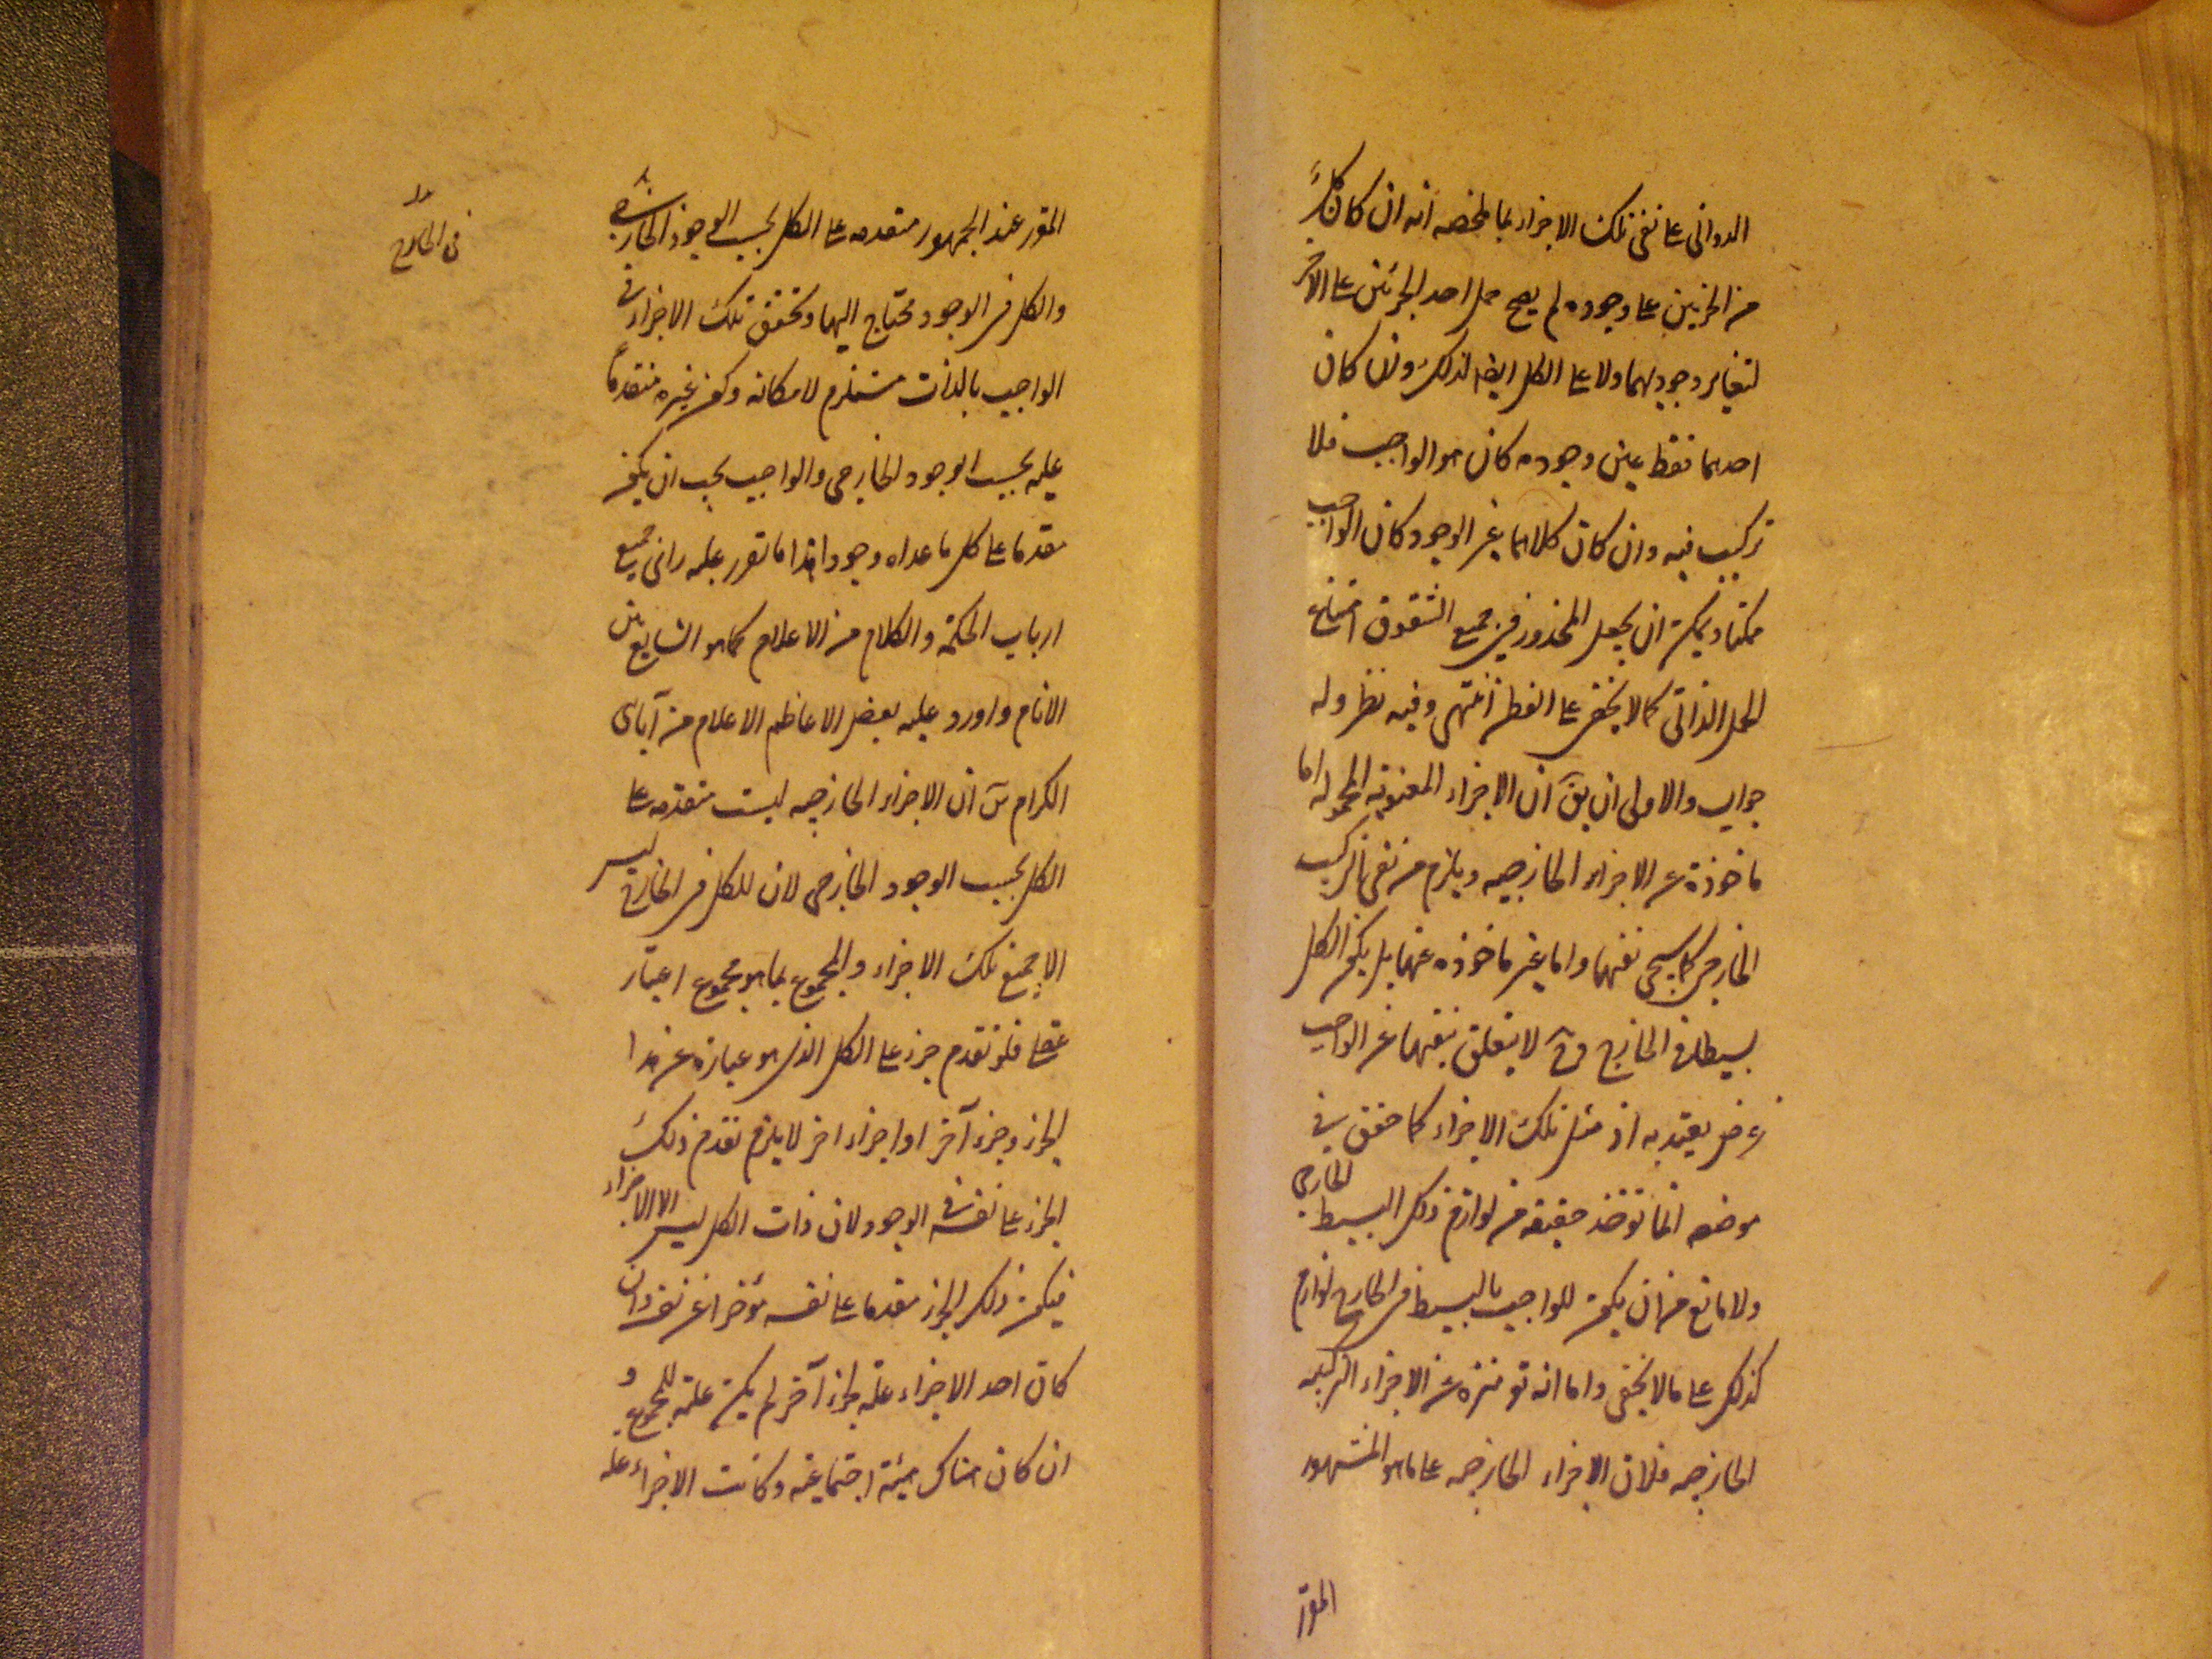 الدوانى على نفى تلك الاجزاء بما ملخصه انه ان كان كل
من الجزئين عين وجوده لم يصح حمل احد الجزئين على الآخر
لتغاير وجوديهما ولا على الكل ايضا لذلك وان كان
احدهما فقط عين وجوده كان هو الواجب فلا
تركيب فيه وان كان كلاهما غير الوجود كان الواجب
ممكنا ويمكن ان يجعل المحذور فى جميع الشقوق امتناع
الحمل الذاتى كما لا يخفى على الفطن انتهى وفيه نظر وله
جواب والاولى ان يق ان الاجزاء المعنوية المحمولة اما
ماخوذة من الاجزاء الخارجيه ويلزم من نفى التركيب
الخارجى كما سيجى نفيها واما غير ماخوذه عنها بل يكون الكل
بسيطا فى الخارج وح لا يتعلق بنفيها عن الواجب
غرض يعتد به اذ مثل تلك الاجزاء كما حقق فى
موضعه انما توخذ حقيقه من لوازم ذلك البسيط الخارجى
ولا مانع من ان يكون للواجب البسيط فى الخارج لوازم
كذلك على ما لا يخفى واما انه تع منزه عن الاجزاء التركيبيه
الخارجيه فلان الاجزاء الخارجيه على ما هو المشهور
المقرر
المقرر عند الجمهور متقدمه على الكل بحسب الوجود الخارجى
والكل فى الوجود محتاج اليها وتحقق تلك الاجزاء فى
الواجب بالذات مستلزم لامكانه وكون غيره متقدما
عليه بحسب الوجود الخارجى والواجب يجب ان يكون
مقدما على كل ما عداه وجودا هذا ما تقرر عليه راى جميع
ارباب الحكمة والكلام من الاعلام كما هو الشايع بين
الانام واورد عليه بعض الاعاظم الاعلام من آباى
الكرام ان الاجزاء الخارجيه ليست متقدمه على
الكل بحسب الوجود الخارجى لان للكل فى الخارج ليس
الا جميع تلك الاجزاء والمجموع بما هو مجموع اعتبار
عقلى فلو تقدم جزء على الكل الذى هو عبارة عن هذا
الجزء وجزء آخر او اجزاء اخر لا يلزم تقدم ذلك
الجزء على نفسه فى الوجود لان ذات الكل ليس الا الاجزاء
فيكون ذلك الجزء مقدما على نفسه مؤخرا عن نفسه وان
كان احد الاجزاء علة لجزء آخر لم يكن علة للمجموع و
ان كان هناك هيئة اجتماعية وكانت الاجزاء علة
فى الخارج